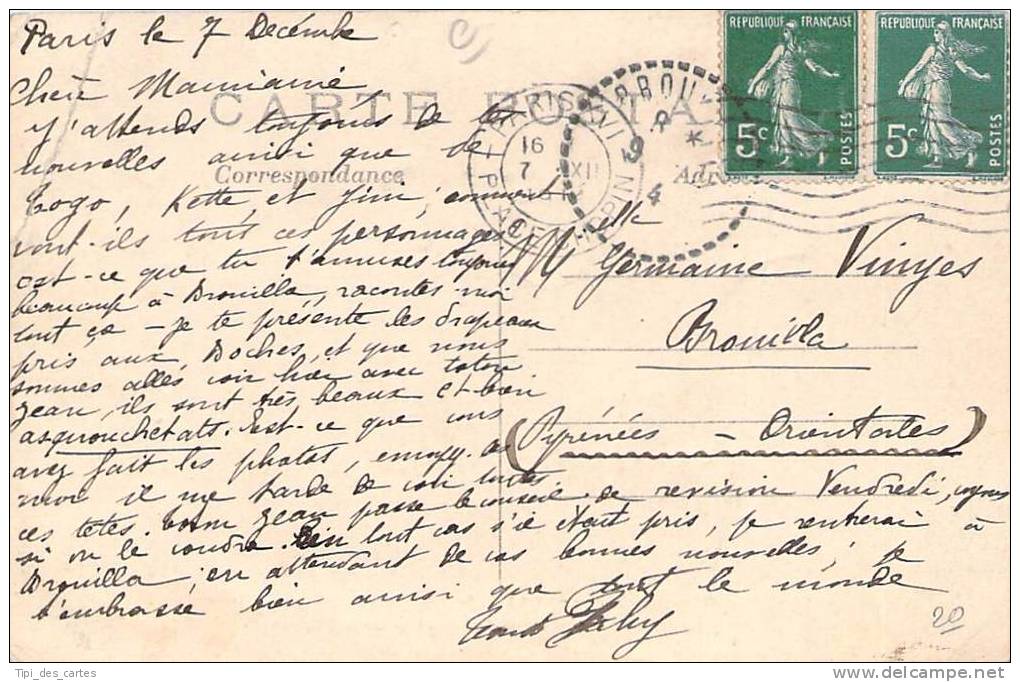 Paris le 7 Décembre
Chère Mainaine
J'attends toujours de tes
nouvelles ainsi que de
Gogo, Kette et Jim, comment
vont-ils tous ces personnages
est-ce que tu t'amuses toujours
beaucoup à Brouilla, racontes moi
tout ça - Je te présente les drapeaux
pris aux Boches, et que nous
sommes allés voir hier avec toton
Jean, ils sont très beaux et bien
asquouchetats. Est-ce que vous
avez fait les photos, envoyez les
moi il me tarde de voir toutes
ces têtes. Jean passe le conseil de revision Vendredi, voyons
si on le voudra. En tout cas s'il était pris, je rentrerai à
Brouilla; en attendant de vos bonnes nouvelles, je
t'embrasse bien ainsi que tout le monde
CARTE POSTALE
Correspondance
Adresse
REPUBLIQUE FRANÇAISE
5c
POSTES
REPUBLIQUE FRANÇAISE
5c
POSTES
PARIS XVI
16
7 XII
PLACE CHOPIN
BROUILLA
9
4
Melle Germaine Vinyes
Brouilla
(Pyrénées - Orientales)
20
Tipi_des_cartes
www.delcampe.net